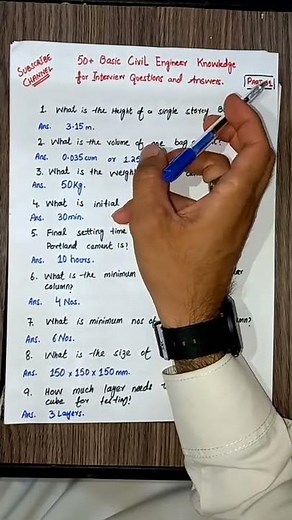 SUBSCRIBE CHANNEL
50+ Basic Civil Engineer Knowledge
for Interview Questions and Answers.
1. What is the Height of a single storey
Ans. 3.15m.
2. What is the volume of one bag
Ans. 0.035cum or 1.25
3. What is the
Ans. 50Kg.
4. What is initial
Ans. 30min.
5. Final setting time
Portland cement is?
Ans. 10 hours.
6. What is the minimum
column?
Ans. 4 Nos.
7. What is minimum nos of
Ans. 6 Nos.
8. What is the size of
Ans. 150 x 150 x 150mm.
9. How much layer needs
cube for testing?
Ans. 3 Layers.